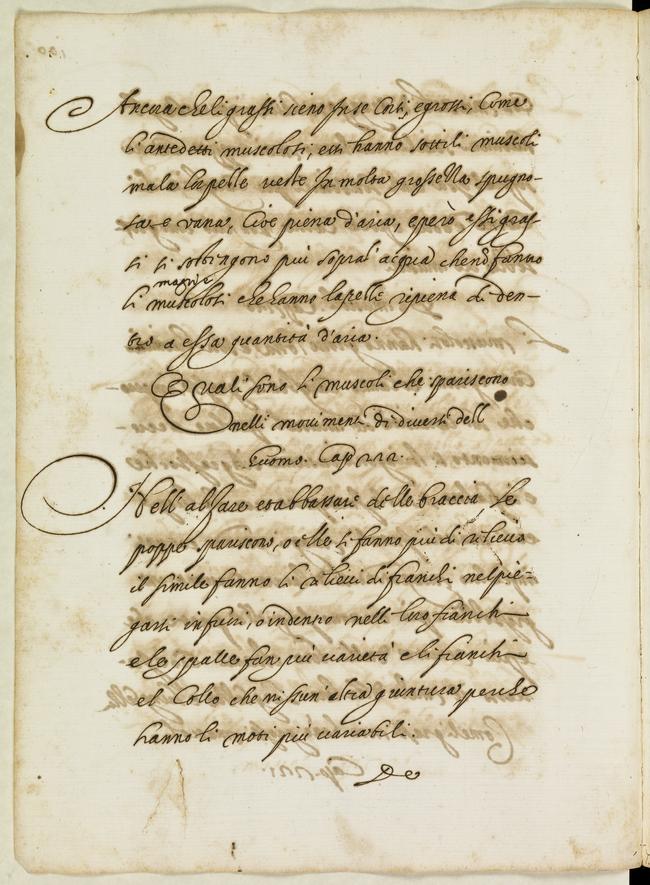 Ancora che li grassi sieno in se corti, e grossi, come
li antedetti muscolosi, essi hanno sottili muscoli
ma la lor pelle veste in molta grossezza spugno-
sa e vana, cioe piena d'aria, e però essi gras-
si si sostengono più sopra l'acqua che nõ fanno
magri e
li muscolosi che hanno la pelle ripiena di den-
tro a essa quantità d'aria.
Quali sono li muscoli che spariscono
nelli movimenti di diversi dell
Huomo. Cap
Nell' alzare et abbassare delle braccia le
poppe spariscono, o elle si fanno più di rilievo
il simile fanno li rilievi di franchi nel pie-
garsi in fuori, o in dentro nelli loro franchi
e le spalle fan più varietà e li franchi
el Collo che nissun' altra giuntura perche
hanno li moti più variabili.
De